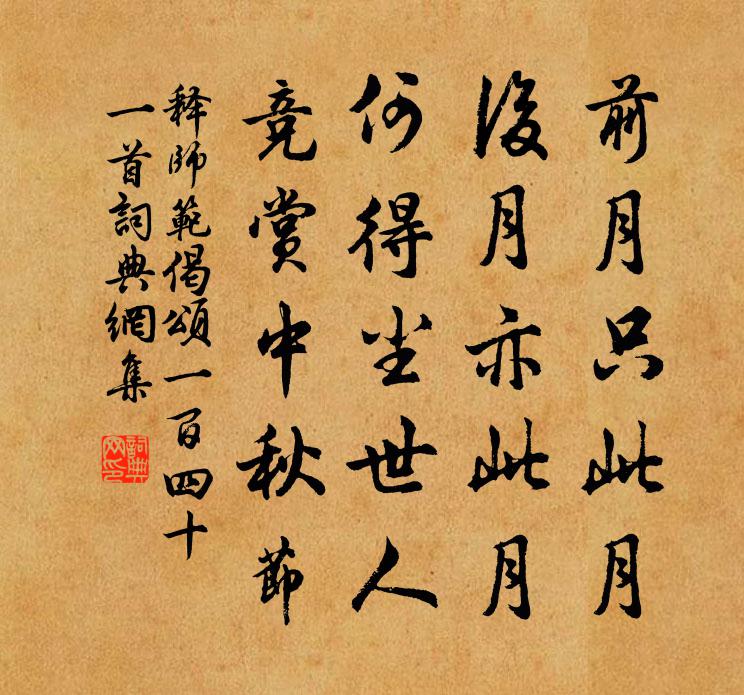 前月只此月
後月亦此月
何得尘世人
竞赏中秋節
释師範偈頌一百四十
一首詞典網集
詞典
网印